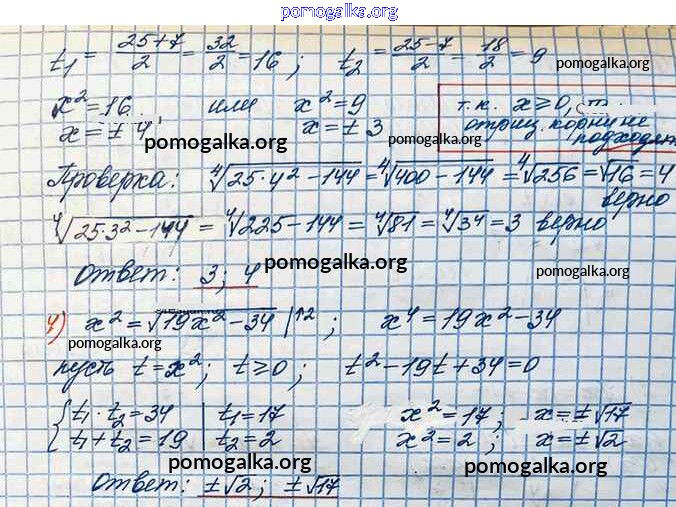 pomogalka.org
t₁ = (25+7)/2 = 32/2 = 16; t₂ = (25-7)/2 = 18/2 = 9
pomogalka.org
x² = 16 или x² = 9 т.к. x ≥ 0, т.
x = ± 4, x = ± 3 отриц. корни не
pomogalka.org pomogalka.org подходят
Проверка: ⁴√(25·4² - 144) = ⁴√(400 - 144) = ⁴√256 = √16 = 4
верно
⁴√(25·3² - 144) = ⁴√(225 - 144) = ⁴√81 = ⁴√3⁴ = 3 верно
Ответ: 3; 4
pomogalka.org pomogalka.org
4) x² = √(19x² - 34) |↑2; x⁴ = 19x² - 34
pomogalka.org
пусть t = x²; t ≥ 0; t² - 19t + 34 = 0
{ t₁ · t₂ = 34 | t₁ = 17 x² = 17; x = ±√17
t₁ + t₂ = 19 | t₂ = 2 x² = 2; x = ±√2
pomogalka.org pomogalka.org
Ответ: ±√2; ±√17